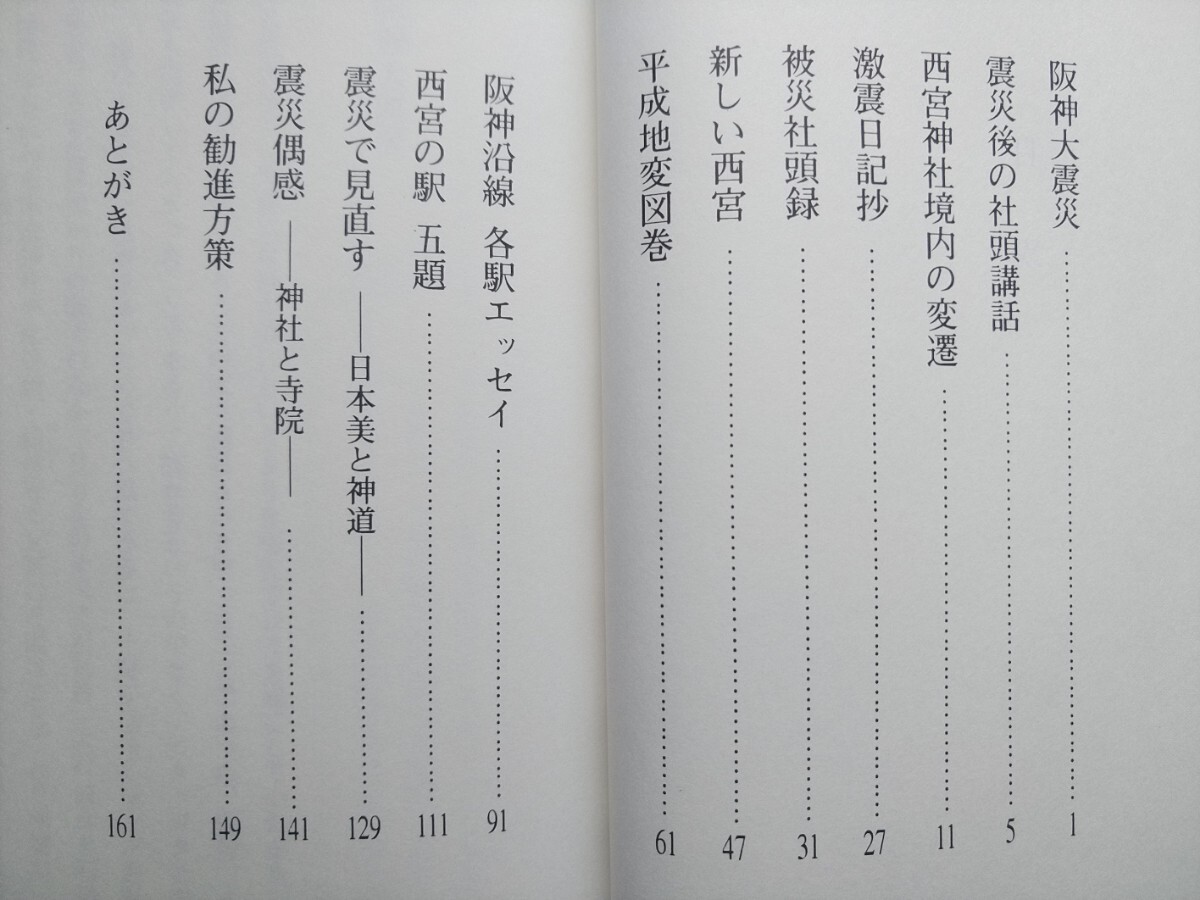 阪神大震災……………………1
震災後の社頭講話……………………5
西宮神社境内の変遷……………………11
激震日記抄……………………27
被災社頭録……………………31
新しい西宮……………………47
平成地変図巻……………………61
阪神沿線 各駅エッセイ……………………91
西宮の駅 五題……………………111
震災で見直す ――日本美と神道――……………………129
震災偶感 ――神社と寺院――……………………141
私の勧進方策……………………149
あとがき……………………161